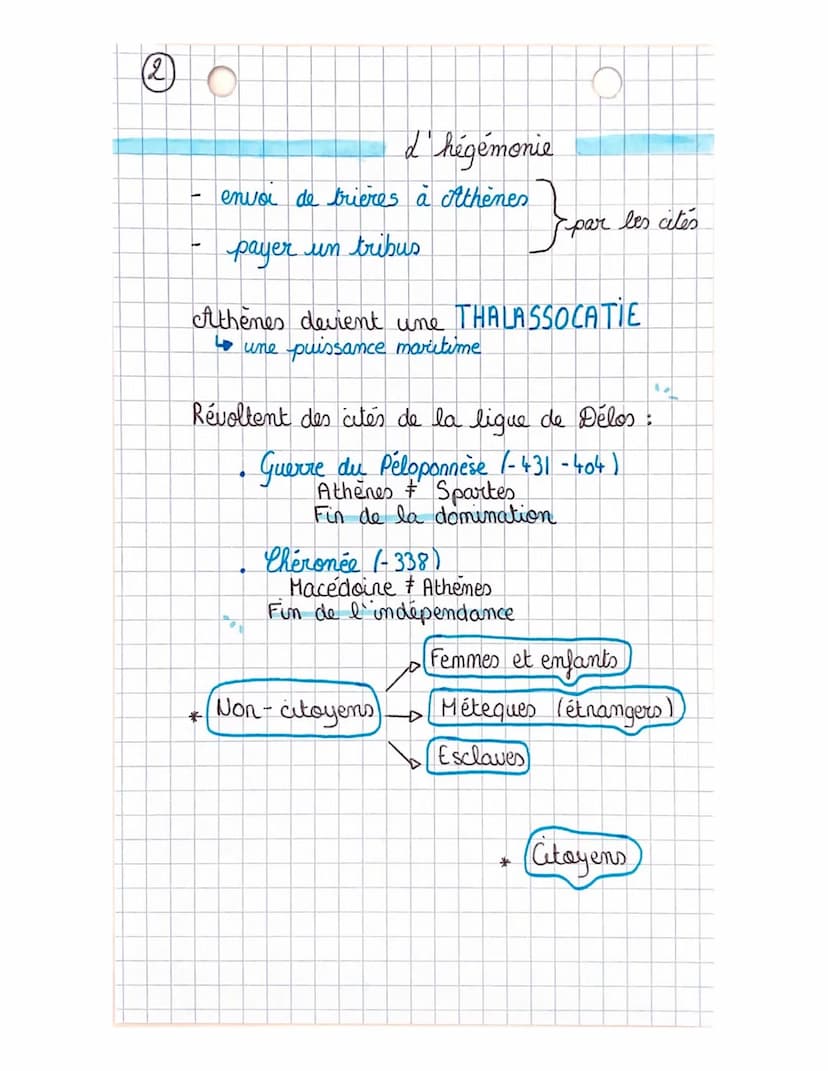 2
L'hégémonie
- envoi de trières à Athènes
- payer un tribus
par les cités
Athènes devient une THALASSOCATIE
↳ une puissance maritime
Révoltent des cités de la ligue de Délos :
• Guerre du Péloponnèse (-431 -404)
Athènes ≠ Spartes
Fin de la domination
• Chéronée (-338)
Macédoine ≠ Athènes
Fin de l'indépendance
Femmes et enfants
* Non-citoyens
Métèques (étrangers)
Esclaves
* Citoyens